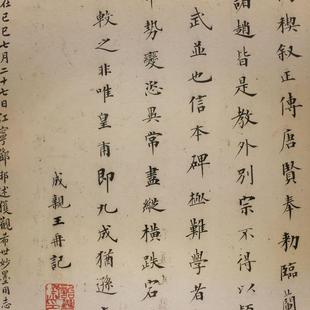 禊叙正傳唐賢奉勅臨蘭
諸趙皆是教外别宗不得以
武並也信本碑極難學者
勢變恣異常盡縱横跌宕
較之非唯皇甫即九成猶遜
成親王舟記
在己巳七月二十七日江寧鄧邦述獲觀希世妙墨同志